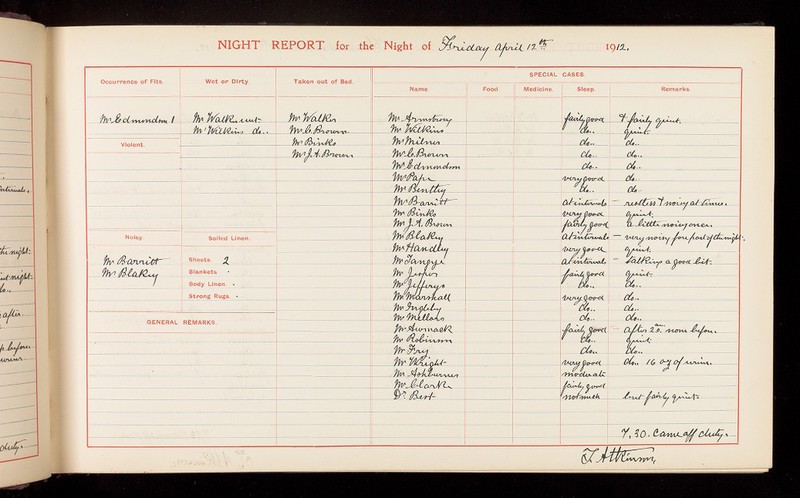 NIGHT REPORT for the Night of Friday April 12th 1912.
Occurrence of Fits. Wet or Dirty Taken out of Bed. SPECIAL CASES.
Name. Food Medicine. Sleep. Remarks.
Mr Edmondson 1 Mr Walker wet Mr Walker Mr Armstrong fairly good & fairly quiet.
Mr Wilkins do.. Mr C. Brown Mr Wilkins do.. quiet.
Violent. Mr Binks Mr Milner do.. do..
Mr J. A. Brown Mr C. Brown do. do..
Mr Edmondson do.. do.
Mr Pape very good do.
Mr Bentley do.. do
Mr Barritt at intervals - restless & noisy at times.
Mr Binks very good quiet.
Mr J. A. Brown fairly good a little noisy once.
Noisy. Soiled Linen. Mr Blakey at intervals - very noisy for part of the night.
Mr Handley very good quiet.
Mr Barritt Sheets. 2 Mr Tangye at intervals - talking a good bit.
Mr Blakey Blankets Mr fairly good quiet.
Body Linen. Mr Jefferys do.. do.
Strong Rugs. Mr Marshall very good do..
Mr Ingleby do.. do..
GENERAL REMARKS. Mr Mellors do.. do..
Mr fairly good - after 2 none before.
Mr Robinson do.. quiet.
Mr Fry do.. do..
Mr Wright very good do.. 16 oz of urine.
Mr Ashburner moderate
Mr Clark fairly good
Dr Best not much but fairly quiet.
7.30. Came off duty.
T. Atkinson,